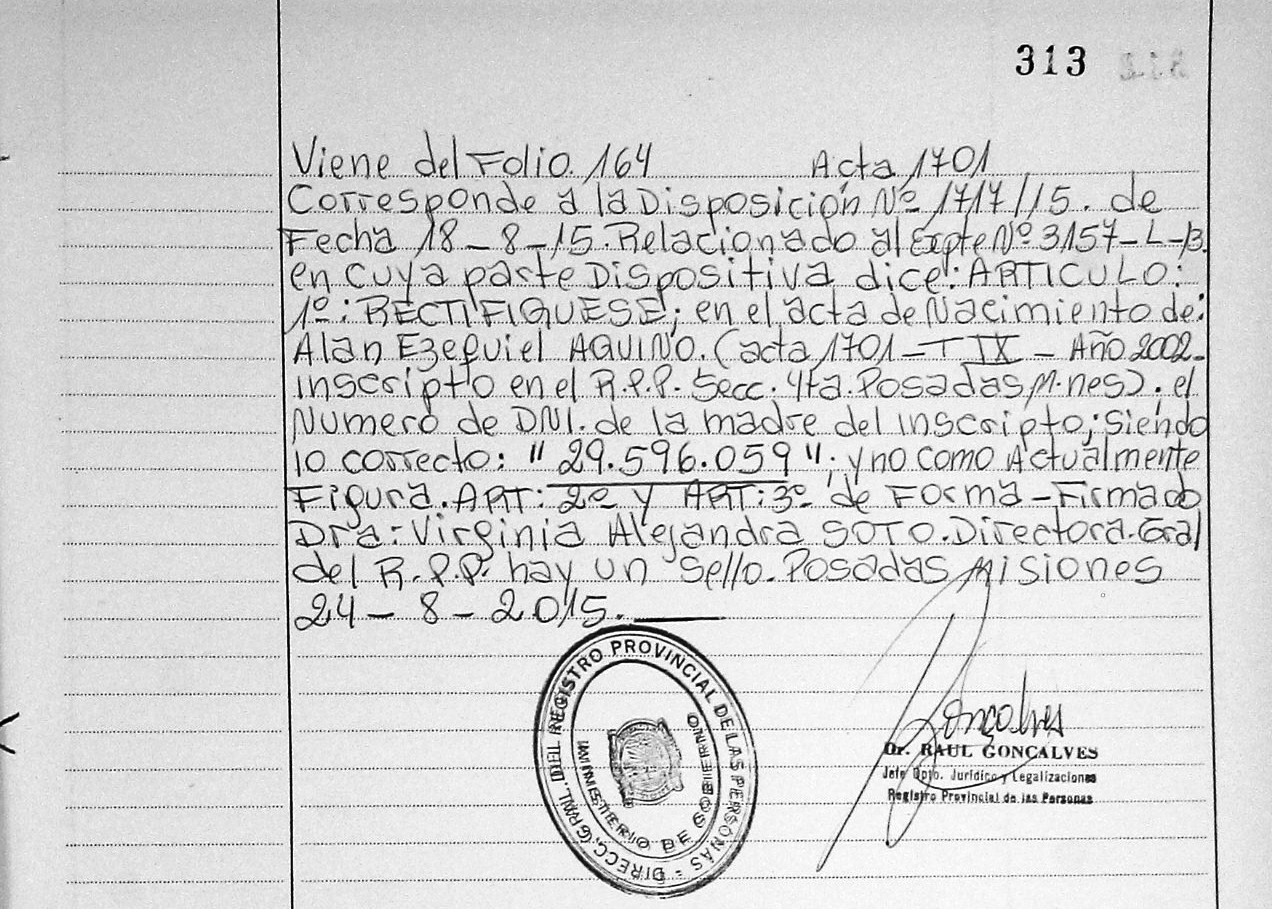 313
Viene del Folio. 164 Acta 1701
Corresponde a la Disposición Nº 1717/15. de
Fecha 18-8-15. Relacionado al Expte Nº 3157-L-13.
en cuya parte Dispositiva dice: ARTICULO:
1º: RECTIFIQUESE; en el acta de Nacimiento de:
Alan Ezequiel AQUINO. (acta 1701-T IX - Año 2002-
inscripto en el R.P.P. Secc. 4ta. Posadas M.nes). el
Numero de DNI. de la madre del inscripto; siendo
lo correcto: "29.596.059"; y no como Actualmente
Figura. ART: 2º y ART: 3º de Forma - Firmado
Dra: Virginia Alejandra SOTO. Directora. Gral
del R.P.P. hay un sello. Posadas Misiones
24-8-2015.
DIRECC. GRAL. DEL REGISTRO PROVINCIAL DE LAS PERSONAS
MINISTERIO DE GOBIERNO
Goncalves
Dr. RAUL GONCALVES
Jefe Dpto. Jurídico y Legalizaciones
Registro Provincial de las Personas